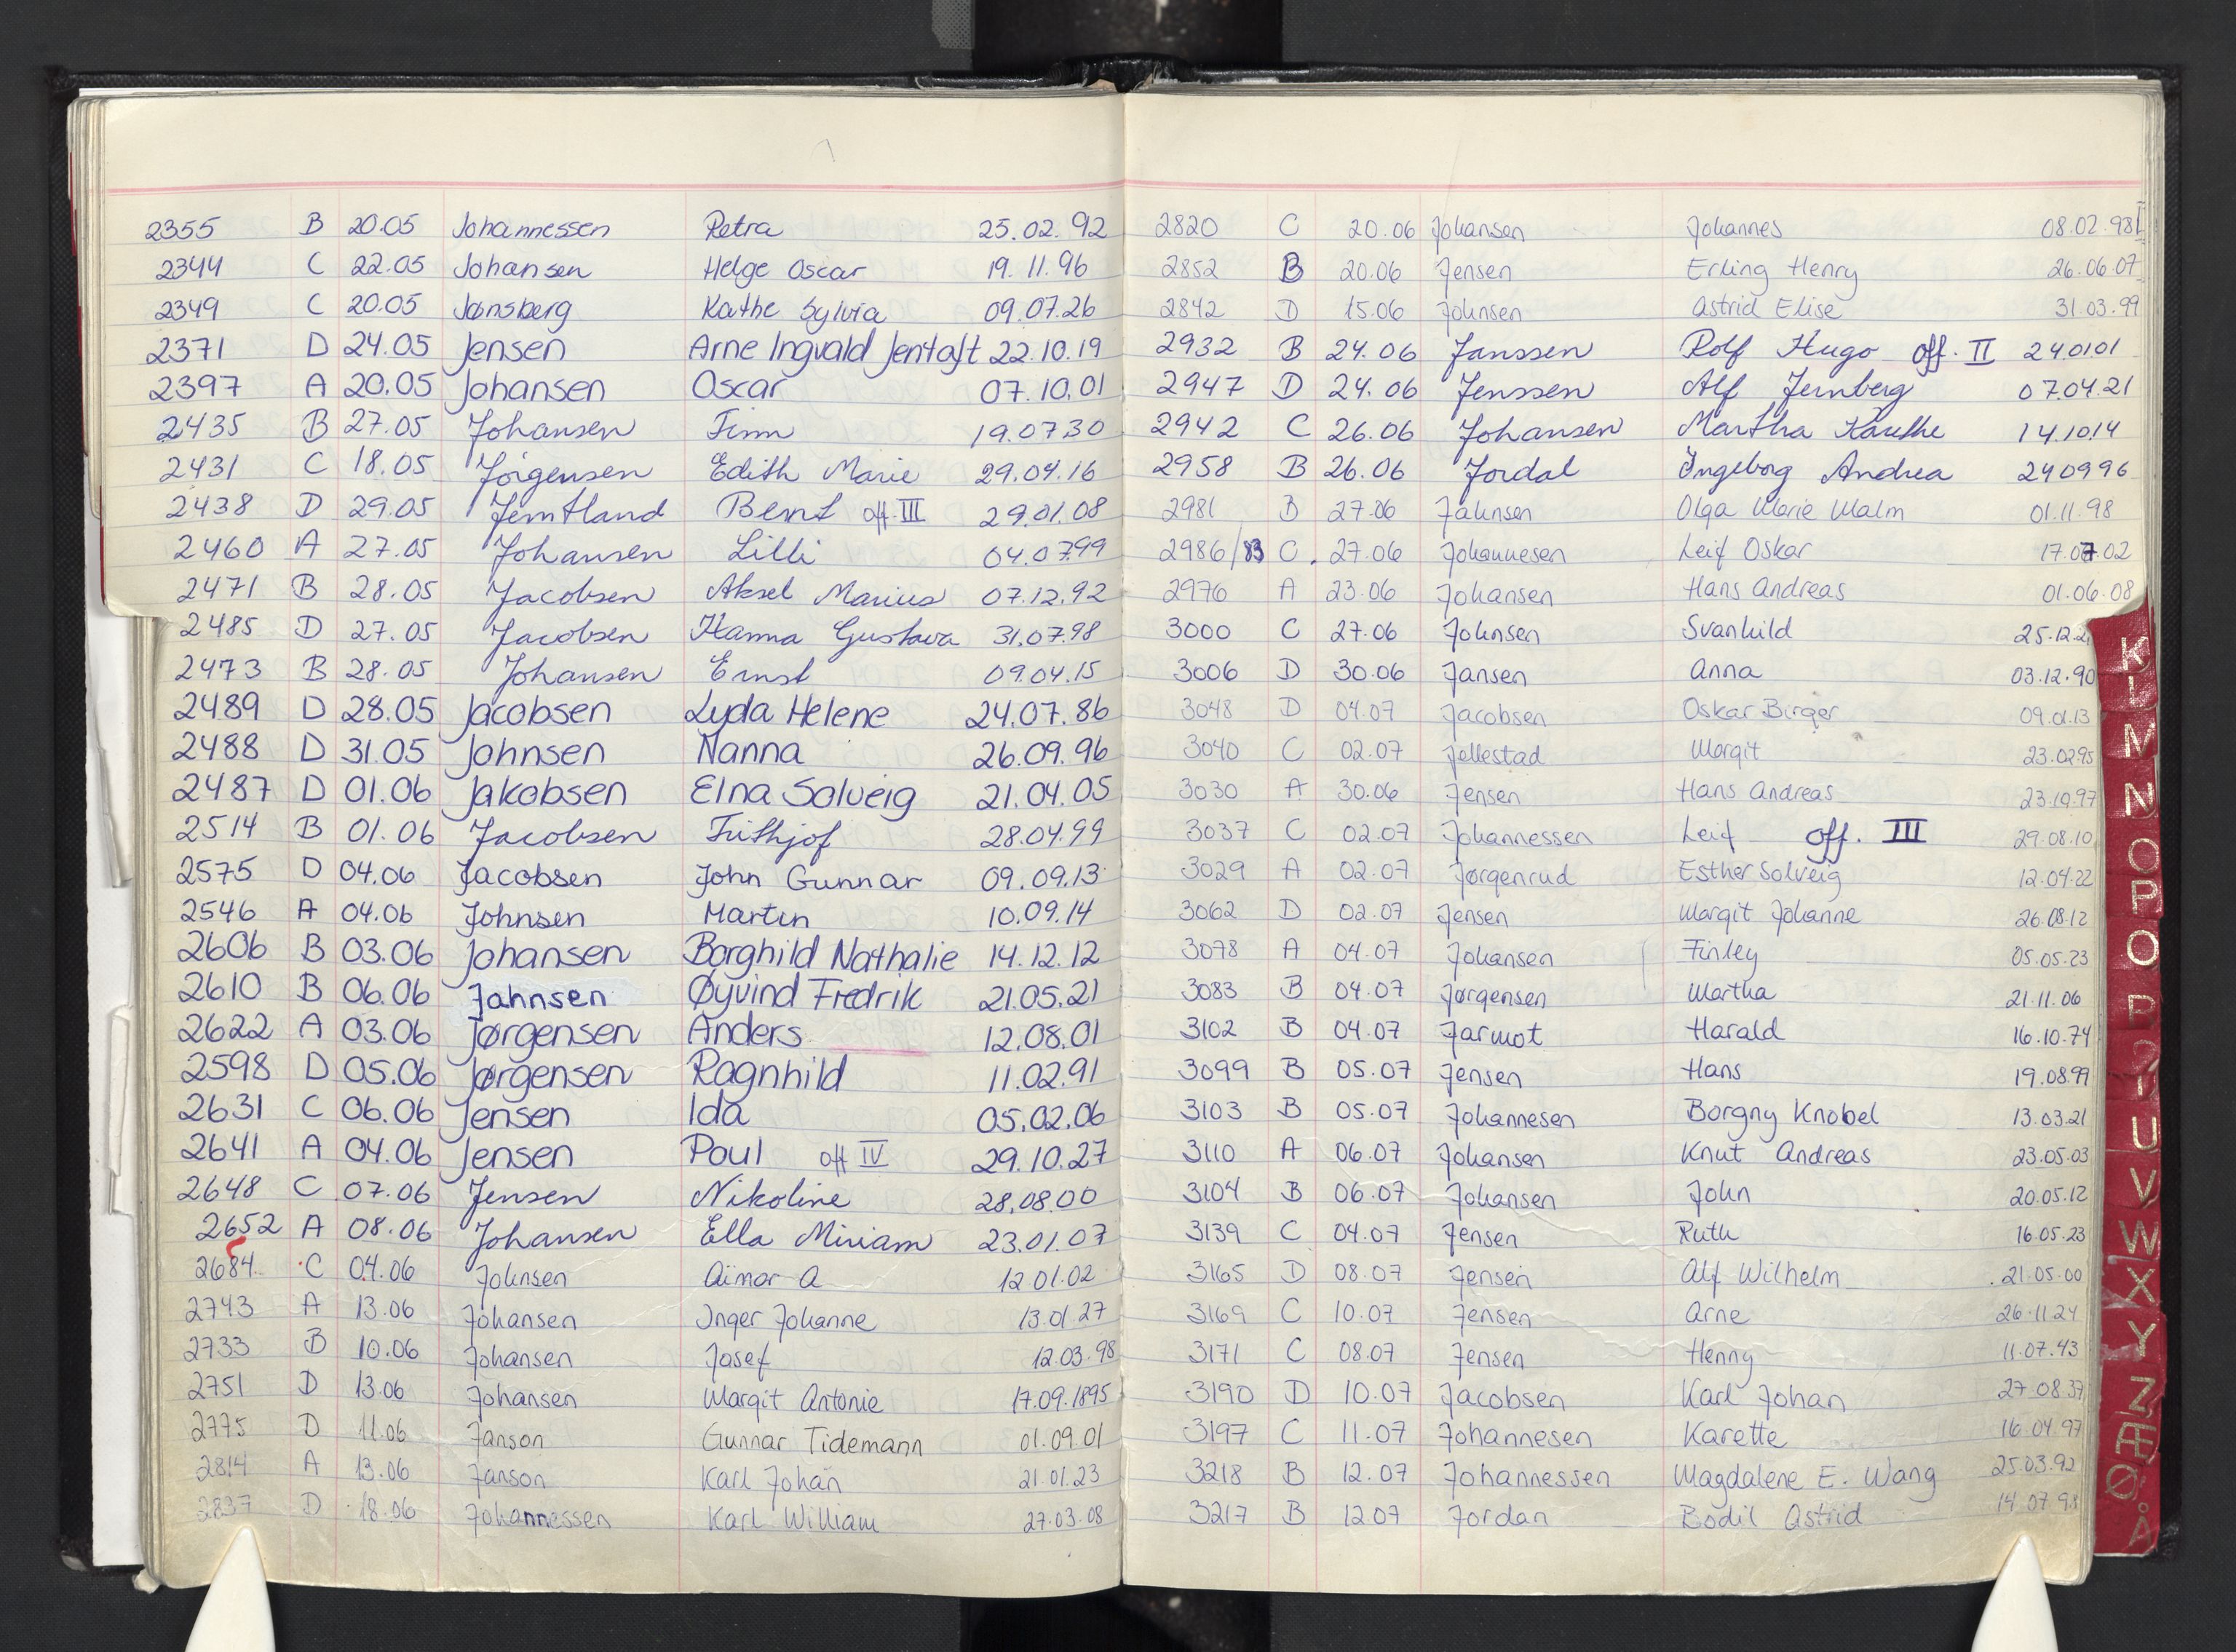 2355 B 20.05 Johannessen Petra 25.02.92
2344 C 22.05 Johansen Helge Oscar 19.11.96
2349 C 20.05 Jønsberg Kathe Sylvia 09.07.26
2371 D 24.05 Jensen Arne Ingvald Jentoft 22.10.19
2397 A 20.05 Johansen Oscar 07.10.01
2435 B 27.05 Johansen Finn 19.07.30
2431 C 18.05 Jörgensen Edith Marie 29.04.16
2438 D 29.05 Jemtland Bent off III 29.01.08
2460 A 27.05 Johansen Lilli 04.07.99
2471 B 28.05 Jacobsen Aksel Marius 07.12.92
2485 D 27.05 Jacobsen Hanna Gustava 31.07.98
2473 B 28.05 Johansen Ernst 09.04.15
2489 D 28.05 Jacobsen Lyda Helene 24.07.86
2488 D 31.05 Johnsen Nanna 26.09.96
2487 D 01.06 Jakobsen Elna Solveig 21.04.05
2514 B 01.06 Jacobsen Frithjof 28.04.99
2575 D 04.06 Jacobsen John Gunnar 09.09.13
2546 A 04.06 Johnsen Martin 10.09.14
2606 B 03.06 Johansen Borghild Nathalie 14.12.12
2610 B 06.06 Jahnsen Øyvind Fredrik 21.05.21
2622 A 03.06 Jørgensen Anders 12.08.01
2598 D 05.06 Jørgensen Ragnhild 11.02.91
2631 C 06.06 Jensen Ida 05.02.06
2641 A 04.06 Jensen Poul off IV 29.10.27
2648 C 07.06 Jensen Nikoline 28.08.00
2652 A 08.06 Johansen Ella Miriam 23.01.07
2684 C 04.06 Johnsen Aimar A 12.01.02
2743 A 13.06 Johansen Inger Johanne 13.01.27
2733 B 10.06 Johansen Josef 12.03.98
2751 D 13.06 Johansen Margit Antonie 17.09.1895
2775 D 11.06 Janson Gunnar Tidemann 01.09.01
2814 A 13.06 Janson Karl Johan 21.01.23
2837 D 18.06 Johannessen Karl William 27.03.08
2820 C 20.06 Johansen Johannes 08.02.98
2852 B 20.06 Jensen Erling Henry 26.06.07
2842 D 15.06 Johnsen Astrid Elise 31.03.99
2932 B 24.06 Janssen Rolf Hugo off. II 24.01.01
2947 D 24.06 Jenssen Alf Jernberg 07.04.21
2942 C 26.06 Johansen Martha Kauthe 14.10.14
2958 B 26.06 Jordal Ingeborg Andrea 24.09.96
2981 B 27.06 Jahnsen Olga Marie Malm 01.11.98
2986/83 C. 27.06 Johannesen Leif Oskar 17.07.02
2976 A 23.06 Johansen Hans Andreas 01.06.08
3000 C 27.06 Johnsen Svanhild 25.12.2
3006 D 30.06 Jansen Anna 03.12.90
3048 D 04.07 Jacobsen Oskar Birger 09.01.13
3040 C 02.07 Jellestad Margit 23.02.95
3030 A 30.06 Jensen Hans Andreas 23.10.97
3037 C 02.07 Johannessen Leif off. III 29.08.10
3029 A 02.07 Jørgenrud Esther Solveig 12.04.22
3062 D 02.07 Jensen Margit Johanne 26.08.12
3078 A 04.07 Johansen Finley 05.05.23
3083 B 04.07 Jørgensen Martha 21.11.06
3102 B 04.07 Jarmot Harald 16.10.74
3099 B 05.07 Jensen Hans 19.08.99
3103 B 05.07 Johannesen Borgny Knobel 13.03.21
3110 A 06.07 Johansen Knut Andreas 23.05.03
3104 B 06.07 Johansen John 20.05.12
3139 C 04.07 Jensen Ruth 16.05.23
3165 D 08.07 Jensen Alf Wilhelm 21.05.00
3169 C 10.07 Jensen Arne 26.11.24
3171 C 08.07 Jensen Henny 11.07.43
3190 D 10.07 Jacobsen Karl Johan 27.08.37
3197 C 11.07 Johannesen Karette 16.04.97
3218 B 12.07 Johannessen Magdalene E. Wang 25.03.92
3217 B 12.07 Jordan Bodil Astrid 14.07.98
K
L
M
N
O
P
O
P
U
V
W
X
Y
Z
Æ
Ø
Å